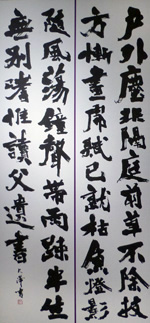 戶外塵隔庭前草不除技
方慚畫虎賦已就枯魚燈影
隨風蕩鐘聲帶雨踈半生
無別嗜惟讀父遺書